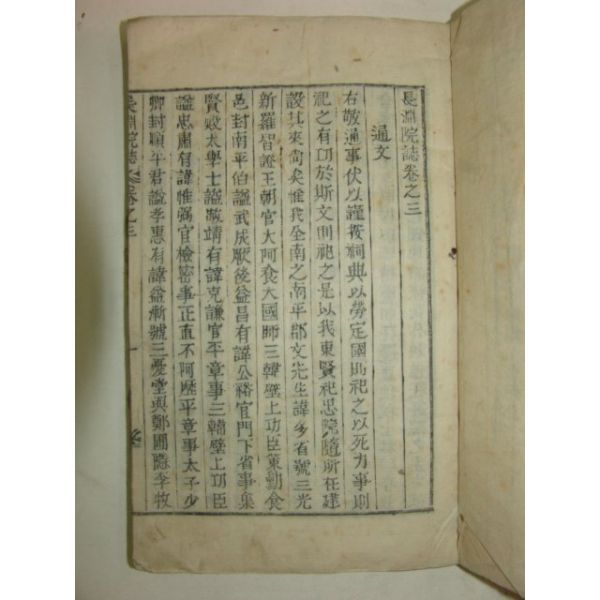 長淵院誌卷之三
通文
右敬通事伏以謹按祠典以勞定國則祀之以死力事則
祀之有功於斯文則祀之是以我東賢祀忠院隨所在建
設其來尙矣惟我全南之南平郡文先生諱多省號三光
新羅智證王朝官大阿飡大國師三韓壁上功臣策勳食
邑封南平伯謚武成厥後益昌有諱公裕官門下省事集
賢殿太學士謚敬靖有諱克謙官平章事三韓壁上功臣
謚忠肅有諱惟弼官檢密事正直不阿歷平章事太子少
卿封順平君謚孝惠有諱益漸號三憂堂與鄭圃隱李牧
長淵院誌 卷之三
一